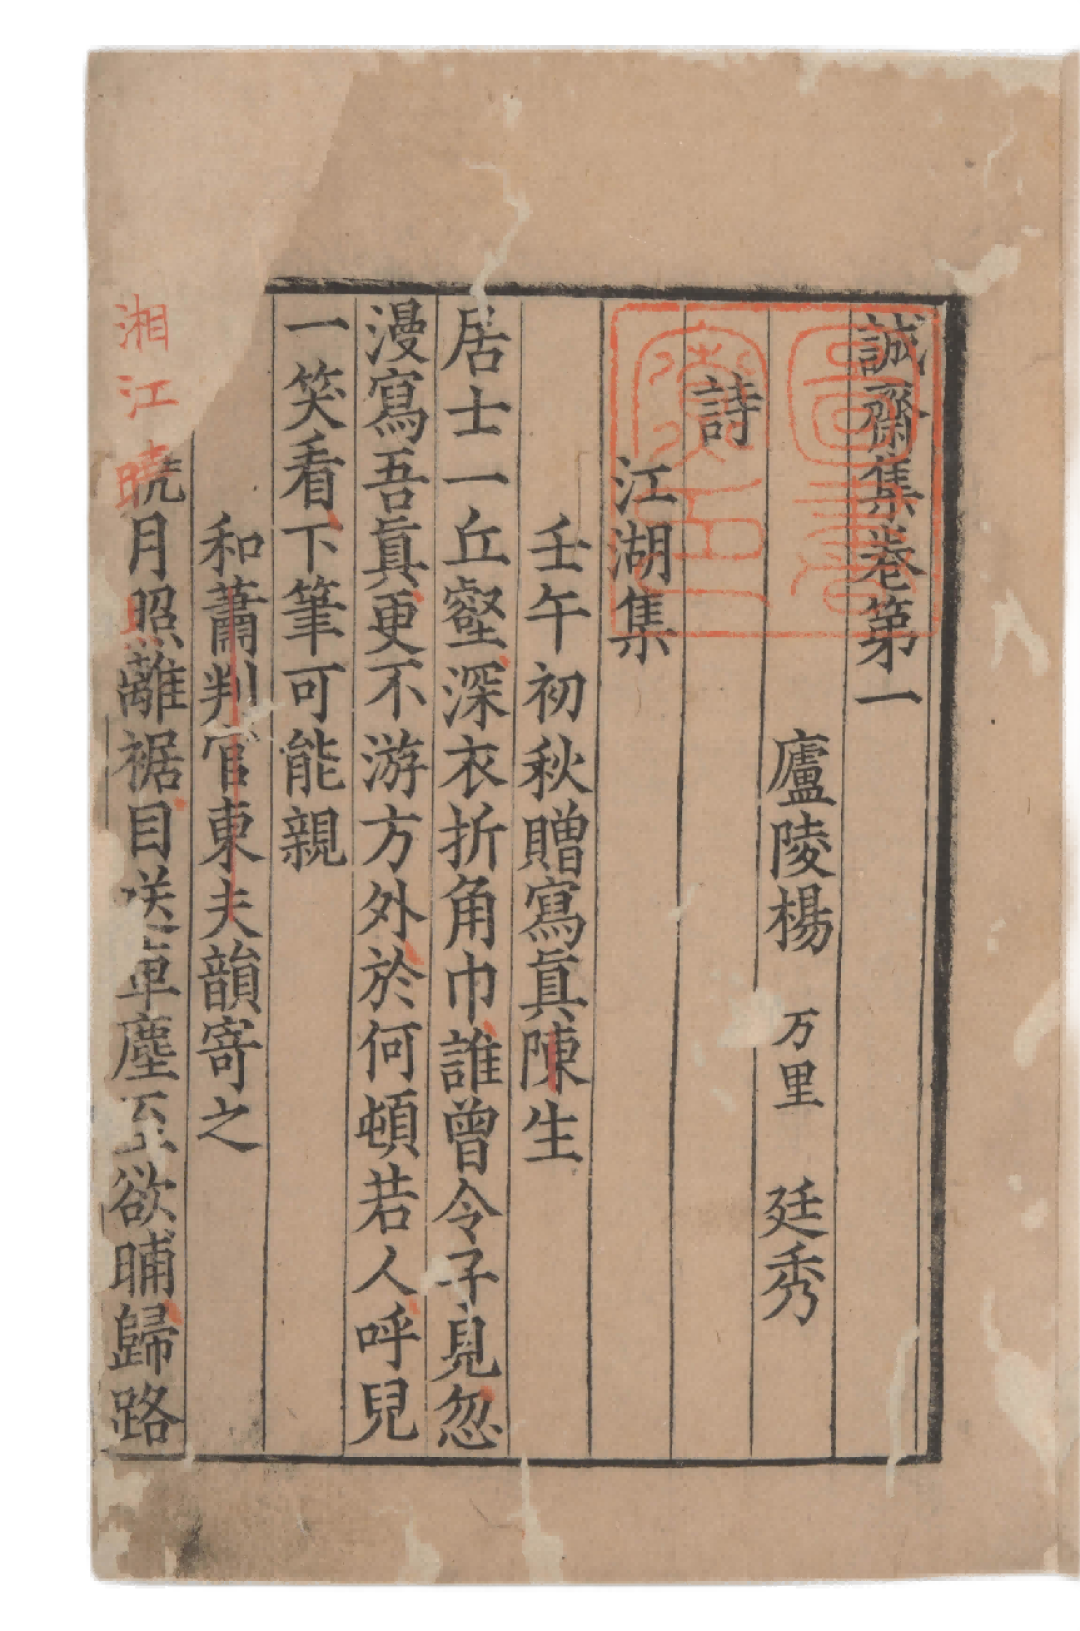 誠齋集卷第一
廬陵楊 万里 廷秀
詩
江湖集
壬午初秋贈寫眞陳生
居士一丘壑深衣折角巾誰曾令子見忽
漫寫吾眞更不游方外於何頓若人呼兒
一笑看下筆可能親
和蕭判官東夫韻寄之
湘江曉月照離裾目送車塵至欲晡歸路